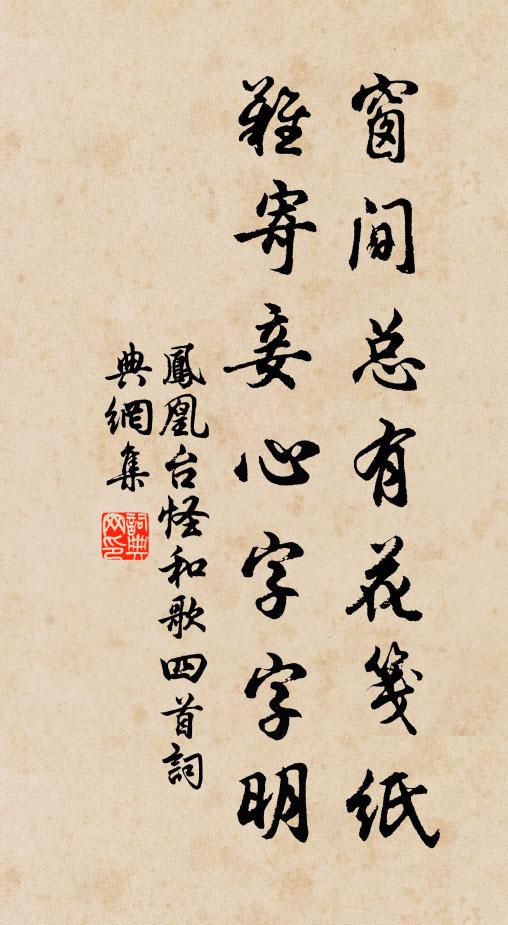 窗间总有花笺纸
难寄妾心字字明
鳳凰台怪和歌四首詞
典網集
詞典网印